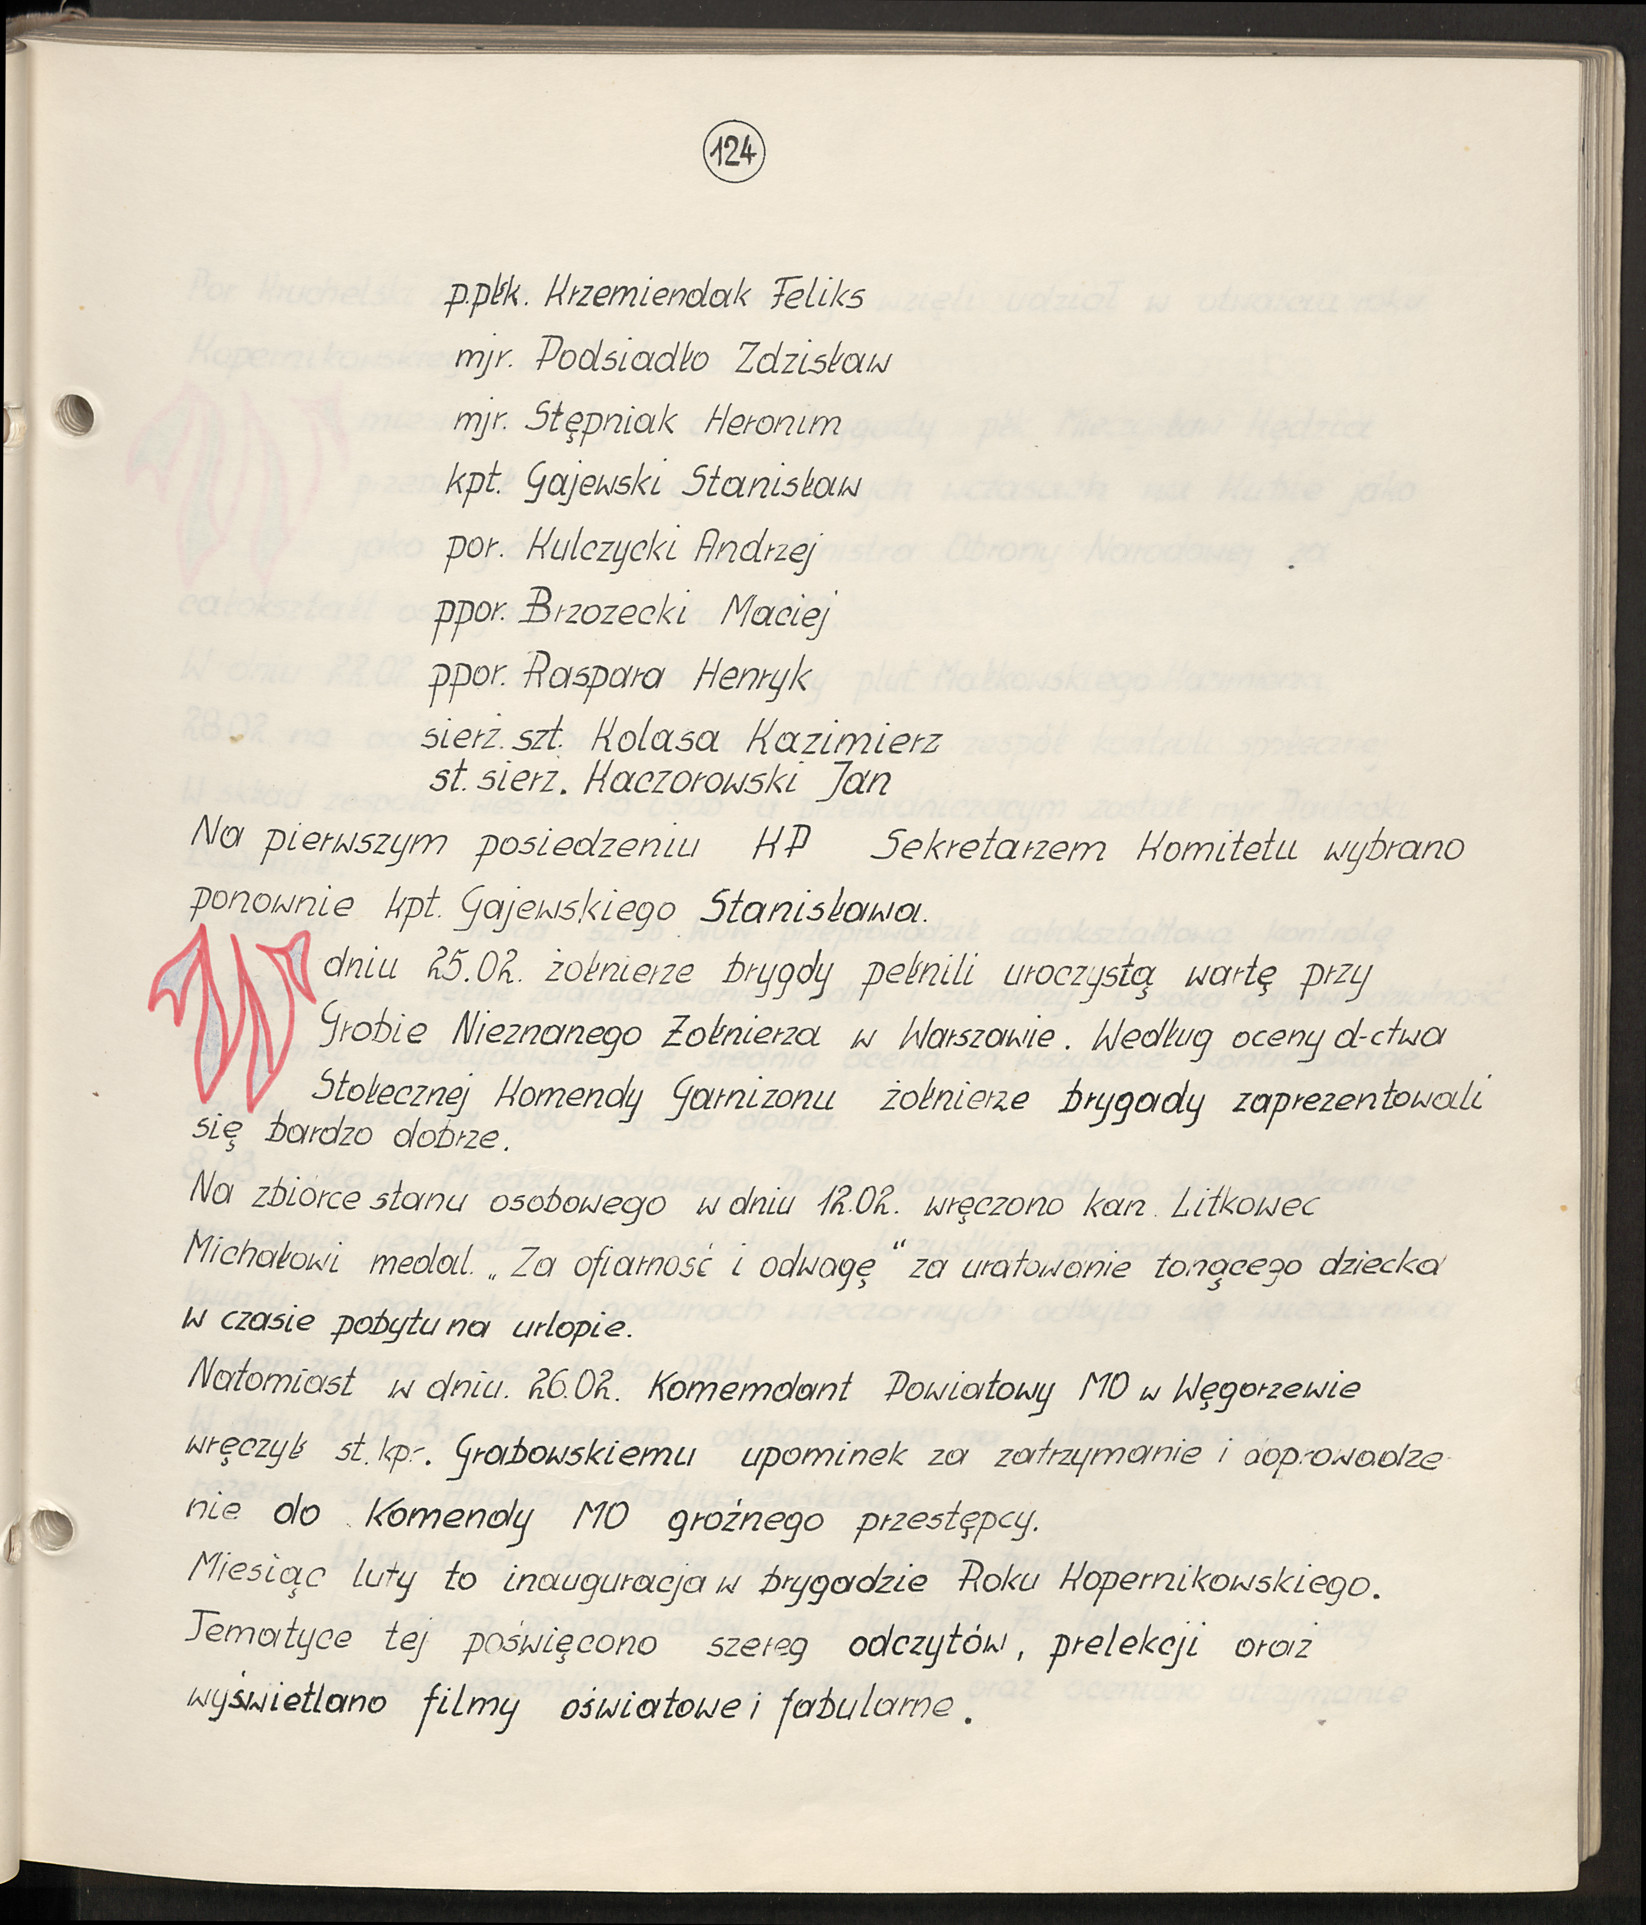 124
p.płk. Krzemiendak Feliks
mjr. Podsiadło Zdzisław
mjr. Stępniak Heronim
kpt. Gajewski Stanisław
por. Kulczycki Andrzej
ppor. Brzozecki Maciej
ppor. Raspara Henryk
sierż. szt. Kolasa Kazimierz
st. sierż. Kaczorowski Jan
Na pierwszym posiedzeniu KP Sekretarzem Komitetu wybrano
ponownie kpt. Gajewskiego Stanisława.
W dniu 25.02. żołnierze brygdy pełnili uroczystą wartę przy
Grobie Nieznanego Żołnierza w Warszawie. Według oceny d-ctwa
Stołecznej Komendy Garnizonu żołnierze brygady zaprezentowali
się bardzo dobrze.
Na zbiórce stanu osobowego w dniu 12.02. wręczono kan. Litkowec
Michałowi medal. „Za ofiarność i odwagę" za uratowanie tonącego dziecka
w czasie pobytu na urlopie.
Natomiast w dniu. 26.02. Komemdant Powiatowy MO w Węgorzewie
wręczył st. kpr. Grabowskiemu upominek za zatrzymanie i doprowadze-
nie do Komendy MO groźnego przestępcy.
Miesiąc luty to inauguracja w brygadzie Roku Kopernikowskiego.
Tematyce tej poświęcono szereg odczytów, prelekcji oraz
wyświetlano filmy oświatowe i fabularne.